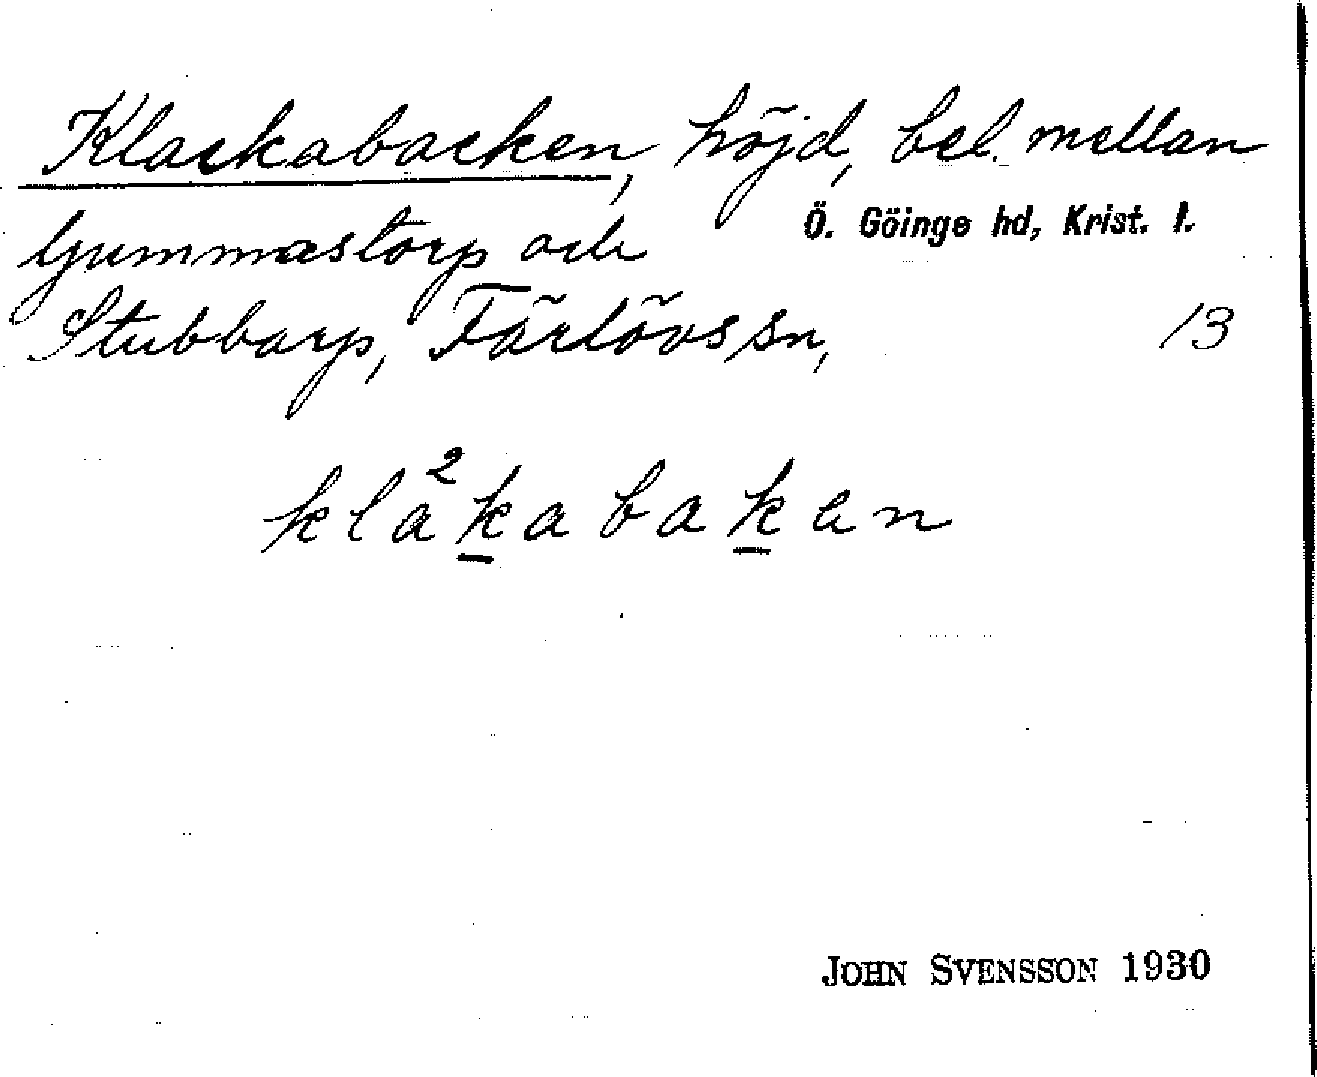 Klackabacken, höjd, bel. mellan
Gummastorp och Ö. Göinge hd, Krist. l.
Stubbarp, Färlövs sn, 13
kla²kabakan
JOHN SVENSSON 1930